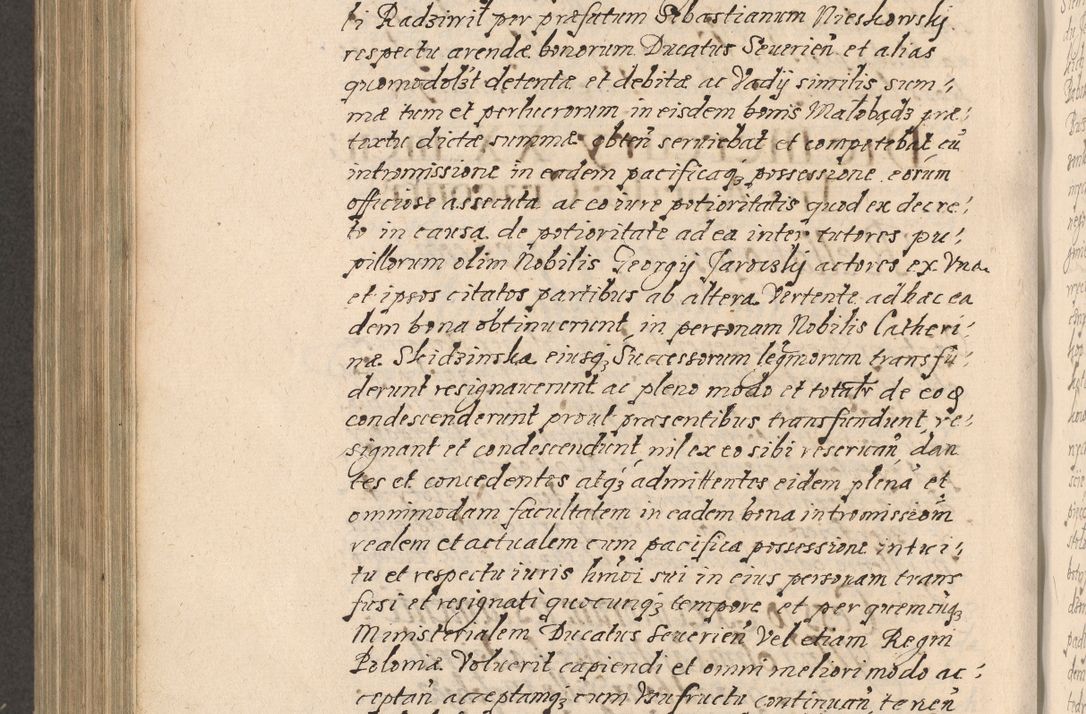 ti Radziwił per præfatum Sebastianum Nieskowskj
respectu arendæ bonorum Ducatus Seuerien̄ et alias
quomodolꝫt detentæ et debitæ ac Vadÿ similis sum⸗
mæ tum et perlucrorum in eisdem bonis Małobądz præ⸗
textu dictæ summæ obten̄ seruiebat et competebat cū
intromissione in eadem pacificaqꝫ possessione eorum
officiose assecuta ac co iure potioritatis quod ex decre⸗
to in causa de potioritate ad ea inter tutores pu⸗
pillorum olim Nobilis Georgÿ Jarockj actores ex Vna
et ipsos citatos partibus ab altera Vertente ad hæc ea
dem bona obtinuerunt in personam Nobilis Catheri⸗
næ Skidzinska eiusqꝫ Successorum legm̄orum transfu⸗
derunt resignauerunt ac pleno modo et totalr de eoꝝ
condescenderunt prout præsentibus transfundunt re⸗
signant et condescendunt nil ex eo sibi reseruan̄ dan
tes et concedentes atqꝫ admittentes eidem plenā et
omnimodam facultatem in eadem bona intromissiom̄
realem et actualem cum pacifica possessione intui⸗
tu et respectu iuris hm̄oi sui in eius personam trans
fusi et resignati quocunqꝫ tempore et per quemcūqꝫ
Ministerialem Ducatus Seuerien̄ Vel etiam Regni
Poloniæ Voluerit capiendi et omni meliori modo ac⸗
ceptan̄ acceptamqꝫ cum Vsufructu continuan̄ tenen̄